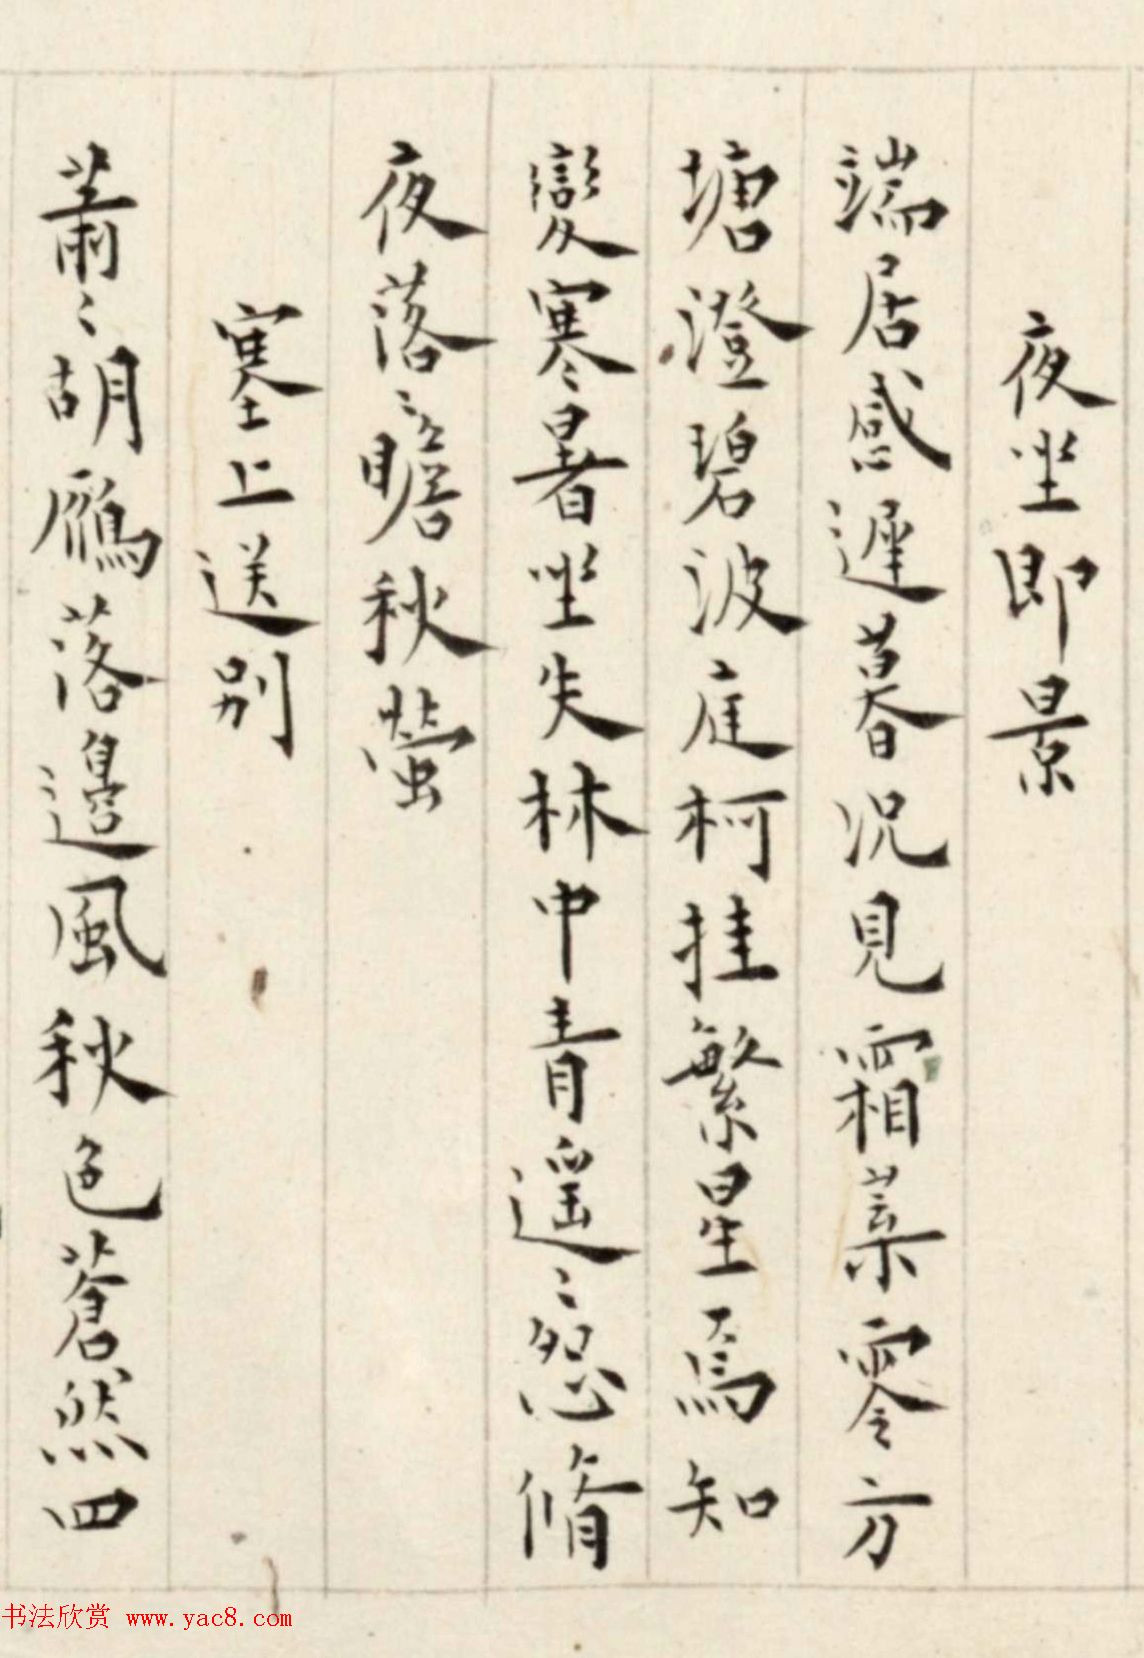 夜坐即景
端居感遲暮況見霜葉零方
塘澄碧波庭柯挂繁星焉知
變寒暑坐失林中青遥〻怨脩
夜落〻瞻秋螢
塞上送別
蕭〻胡鴈落邊風秋色蒼然四
书法欣赏 www.yac8.com